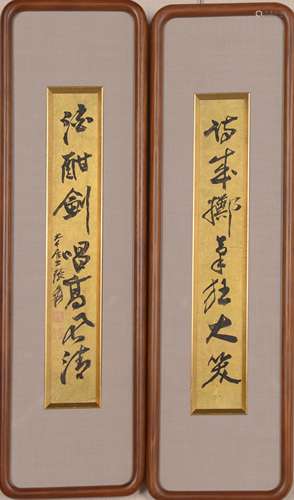 詩成擲筆狂大笑
酒酣劍唱高風清
大千居士張爰